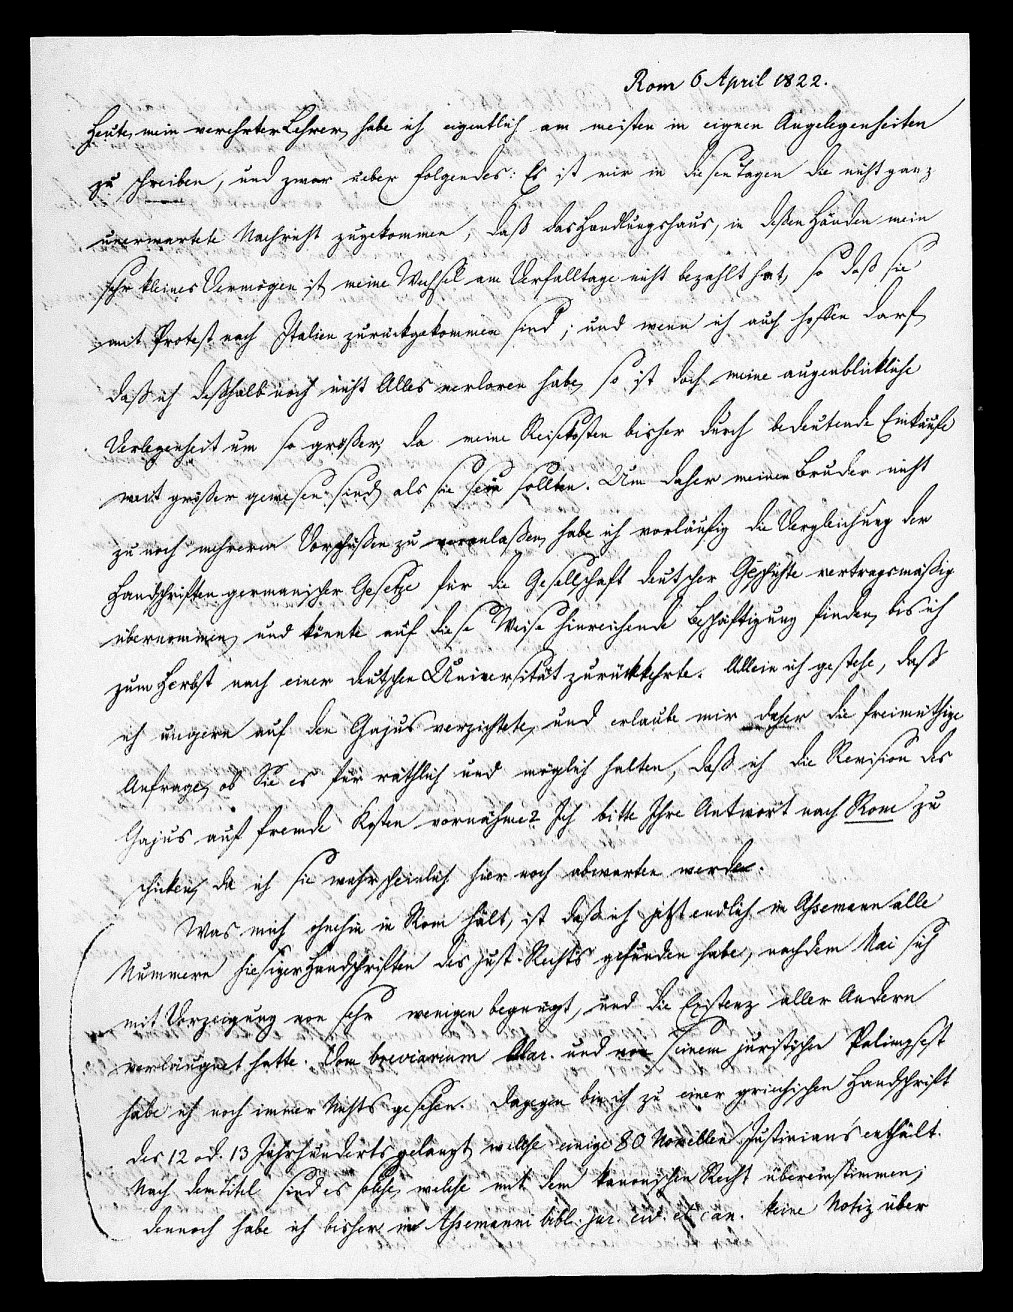 Rom 6 April 1822.
Heute, mein verehrter Lehrer, habe ich eigentlich am meisten in eignen Angelegenheiten
zu schreiben, und zwar ueber folgendes: Es ist mir in diesen Tagen die nicht ganz
unerwartete Nachricht zugekommen, daß das Handlungshaus, in deßen Händen mein
sehr kleines Vermögen ist, meine Wechsel am Verfalltage nicht bezahlt hat, so daß sie
mit Protest nach Italien zurückgekommen sind; und wenn ich auch hoffen darf,
daß ich deßhalb noch nicht Alles verloren habe, so ist doch meine augenblickliche
Verlegenheit um so größer, da meine Reisekosten bisher durch bedeutende Einkäufe
weit größer gewesen sind, als sie sein sollten. Um daher meinen Bruder nicht
zu noch mehreren Vorschüßen zu veranlaßen, habe ich vorläufig die Vergleichung der
Handschriften germanischer Gesetze für die Gesellschaft deutscher Geschichte vertragsmäßig
übernommen, und könnte auf diese Weise hinreichende Beschäftigung finden, bis ich
zum Herbst nach einer deutschen Universität zurückkehrte. Allein ich gestehe, daß
ich ungern auf den Gajus verzichtete, und erlaube mir daher die freimüthige
Anfrage, ob Sie es für räthlich und möglich halten, daß ich die Revision des
Gajus auf fremde Kosten vornähme? Ich bitte Ihre Antwort nach Rom zu
schicken, da ich sie wahrscheinlich hier noch abwarten werde.
Was mich ohnehin in Rom hält, ist daß ich jetzt endlich in Assemann alle
Nummern hiesiger Handschriften des Just. Rechts gefunden habe, nachdem Mai sich
mit Vorzeigung von sehr wenigen begnügt, und die Existenz aller Andern
verläugnet hatte. Vom breviarium Alar. und von seinem juristischen Palimpsest
habe ich noch immer Nichts gesehen. Dagegen bin ich zu einer griechischen Handschrift
des 12 od. 13 Jahrhunderts gelangt, welche einige 80 Novellen Justinians enthält.
Nach dem Titel sind es solche, welche mit dem kanonischen Recht übereinstimmen;
dennoch habe ich bisher in Assemanni bibl. jur. civ. et can. keine Notiz über